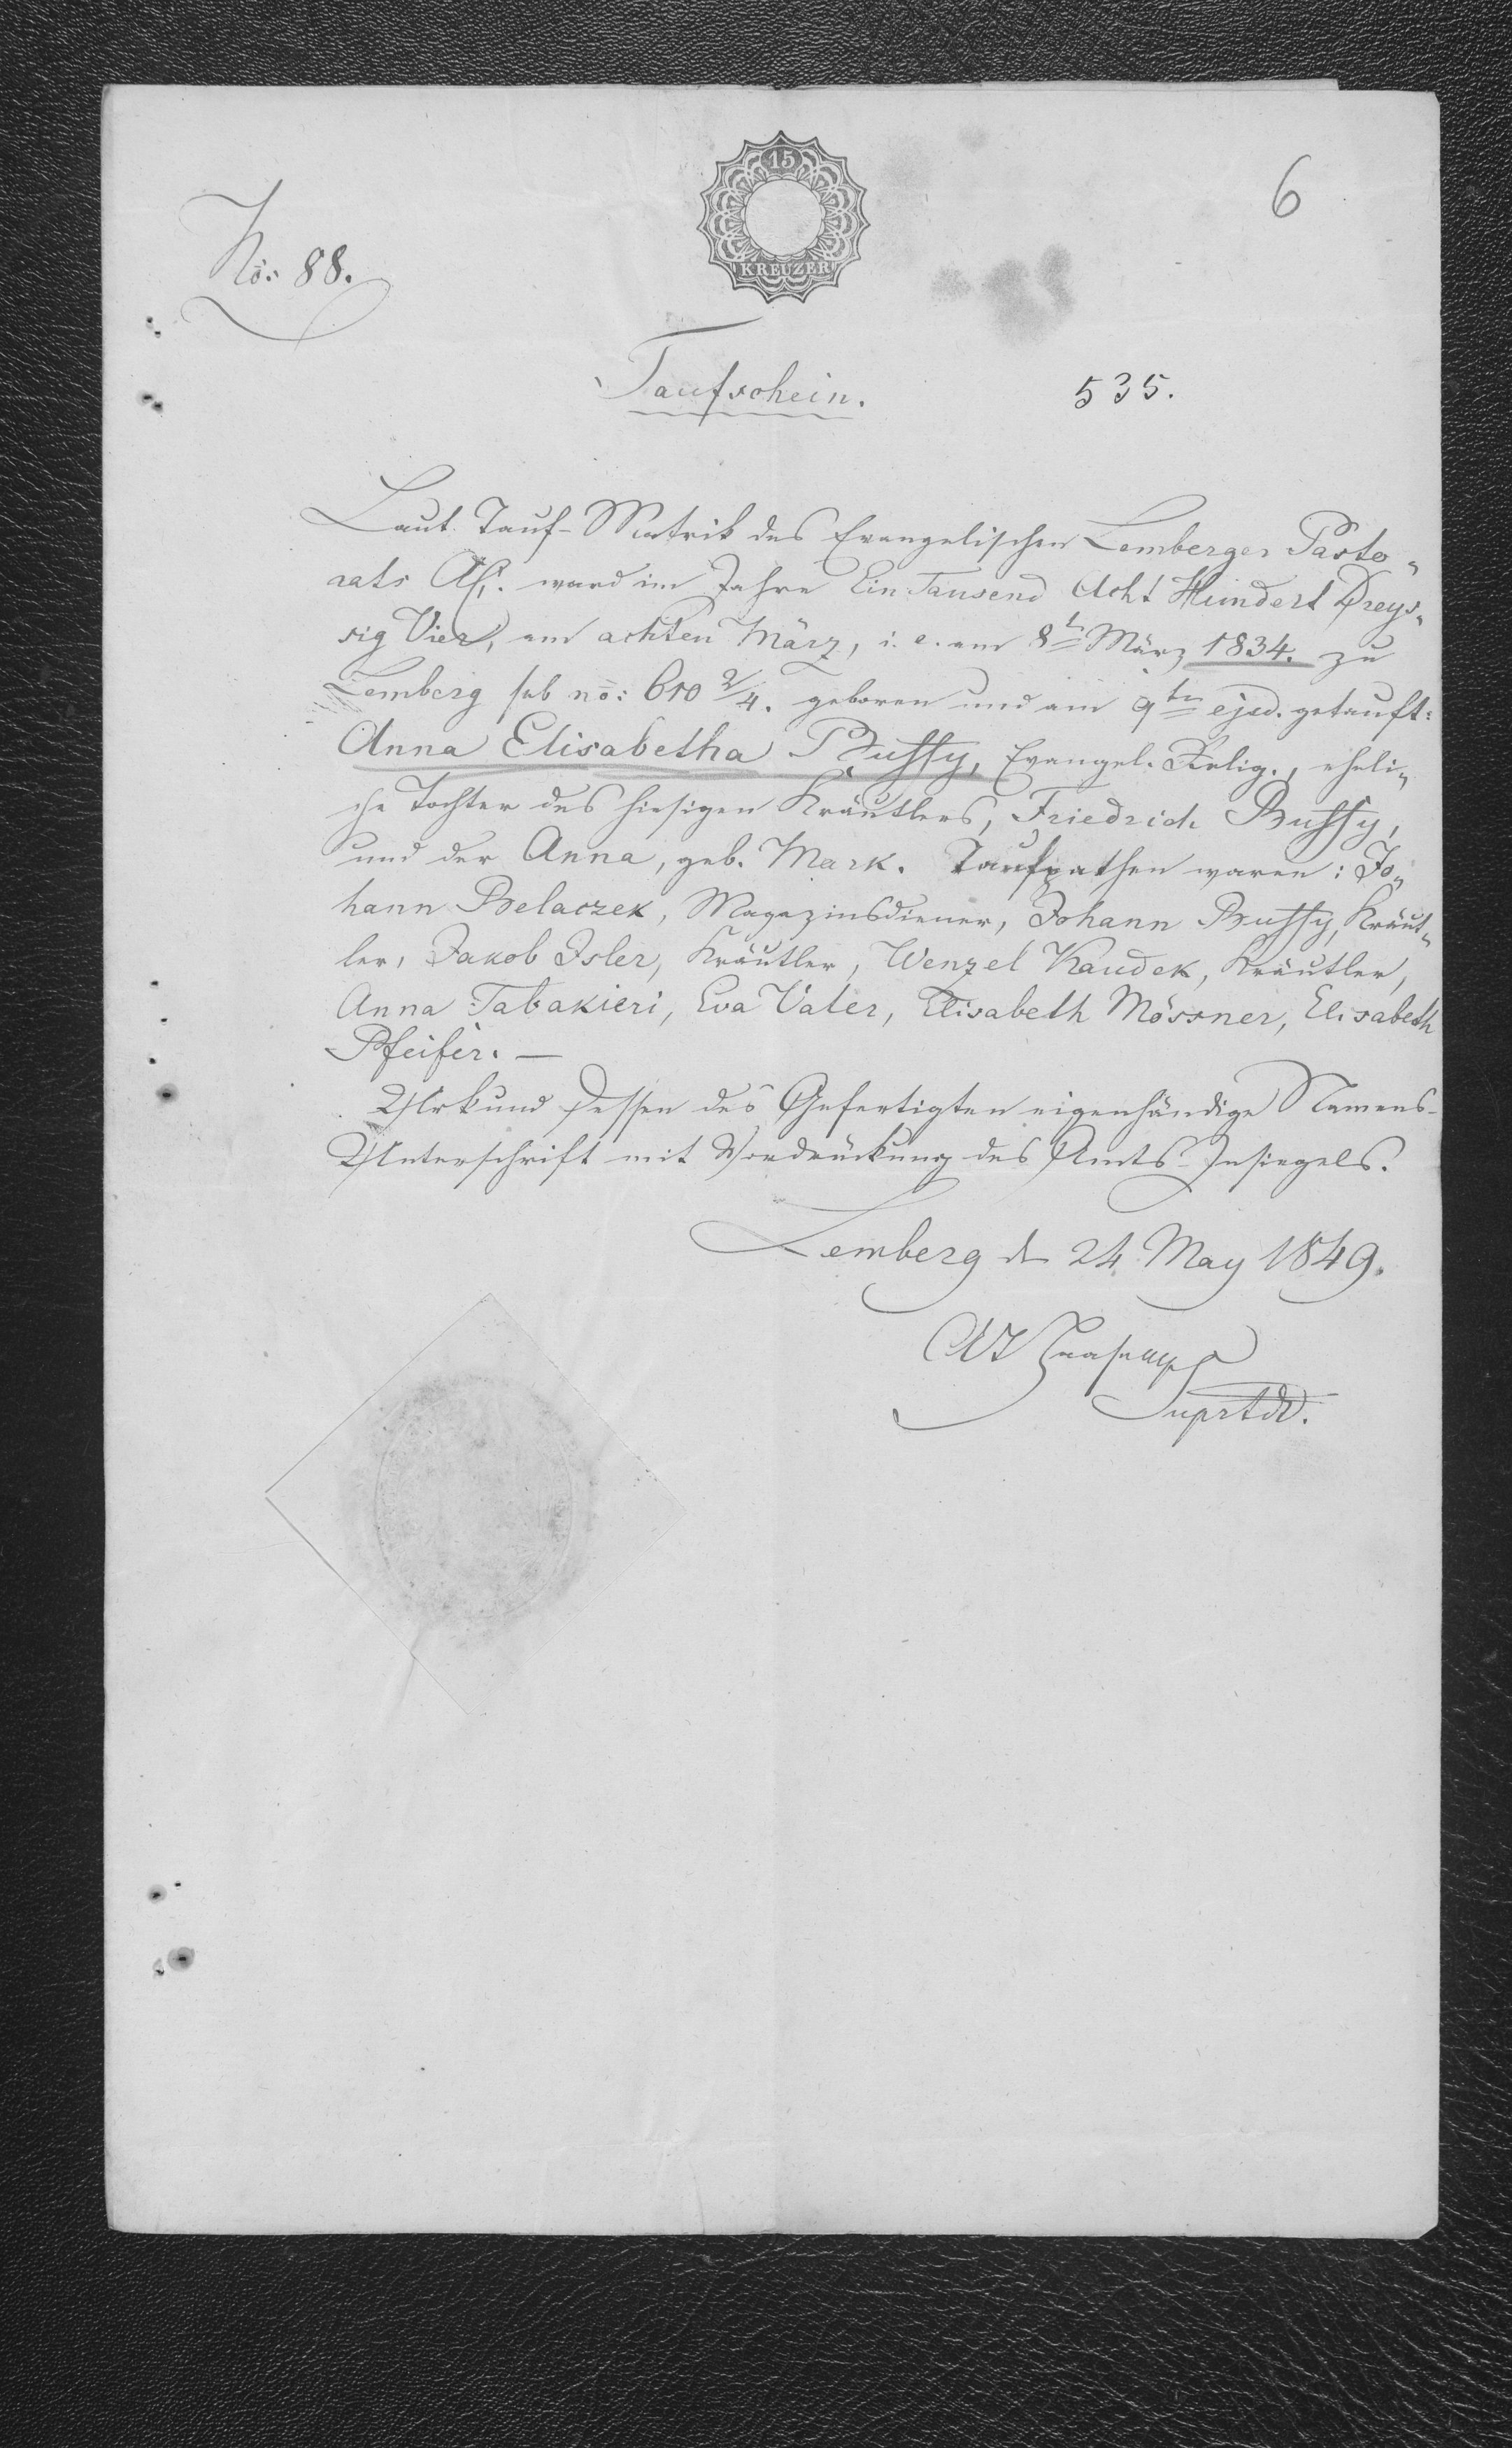 15
KREUZER
6
No: 88.
Taufschein.
535.
Laut Tauf-Matrik des Evangelischen Lemberger Pasto„
rats AC. ward im Jahre Ein Tausend Acht Hundert Dreys„
sig Vier, am achten März, i. e. am 8t März 1834. zu
Lemberg sub no: 610 2/4. geboren und am 9ten ejsd. getauft:
Anna Elisabetha Bussy, Evangel. Relig., eheli„
che Tochter des hiesigen Kräutlers, Friedrich Bussy,
und der Anna, geb. Mark. Taufpathen waren: Jo„
hann Belaczek, Magazinsdiener, Johann Bussy, Kräut„
ler, Jakob Isler, Kräutler, Wenzel Kaudek, Kräutler,
Anna Tabakieri, Eva Vater, Elisabeth Mössner, Elisabeth
Pfeifer. —
Urkund dessen des Gefertigten eigenhändige Namens-
Unterschrift mit Vordrückung des Amts-Insiegels.
Lemberg d 24 May 1849.
Suprtdt.